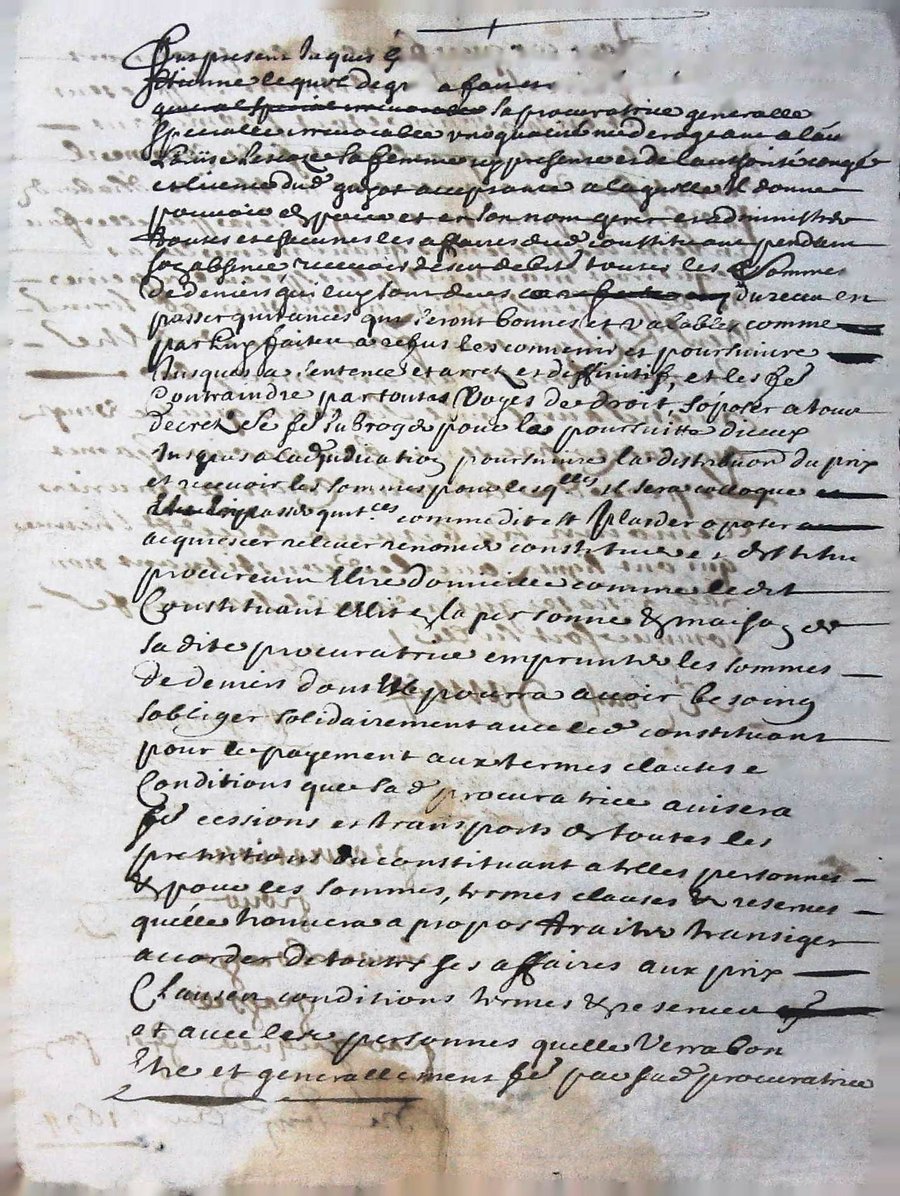 Fut present Jaques G
Etienne lequel de gr a fait et
sa procuratrice generalle
specialle irrevocable une quallité ne derogeant a lau
Louise sa femme cy presente et de lauthorité congé
et licence dud acceptante a laquelle Il donne
pouvoir de pour et en son nom gerer et administrer
toutes et chacunes les affaires dud constituant pendant
son absence recevoir de ses debit toutes les sommes
de deniers qui luy sont dues du receu en
passer quitances qui seront bonnes et valables comme
par luy faites a refus les convenir et poursuivre
Jusques a sentence et arret et diffinitif, et les fe
Contraindre par toutes voyes de droit, soposer a tous
decret se fe subroger pour la poursuitte diceux
Jusques a ladjudication poursuivre la distribuon du prix
et recevoir les sommes pour lesqlles il sera colloque
passer quitces comme dit est plaider oposer
acquiescer relever renoncer constituer et destituer
procureur Elire domicille comme ledit
Constituant ellit en la personne & maison de
sa dite procuratrice emprunter les sommes
de deniers dont elle pourra avoir besoing
sobliger solidairement avec led constituant
pour le payement aux termes clauses e
Conditions que sad procuratrice avisera
fe cessions et transports de toutes les
pretentions du constituant a telles personnes
& pour les sommes, termes clauses & reserves
quelle trouvera a propos traiter transiger
accorder de toutes ses affaires aux prix
Clauses conditions termes & reserves
et avec les personnes quelle verra bon
Etre et generallement fe par sad procuratrice